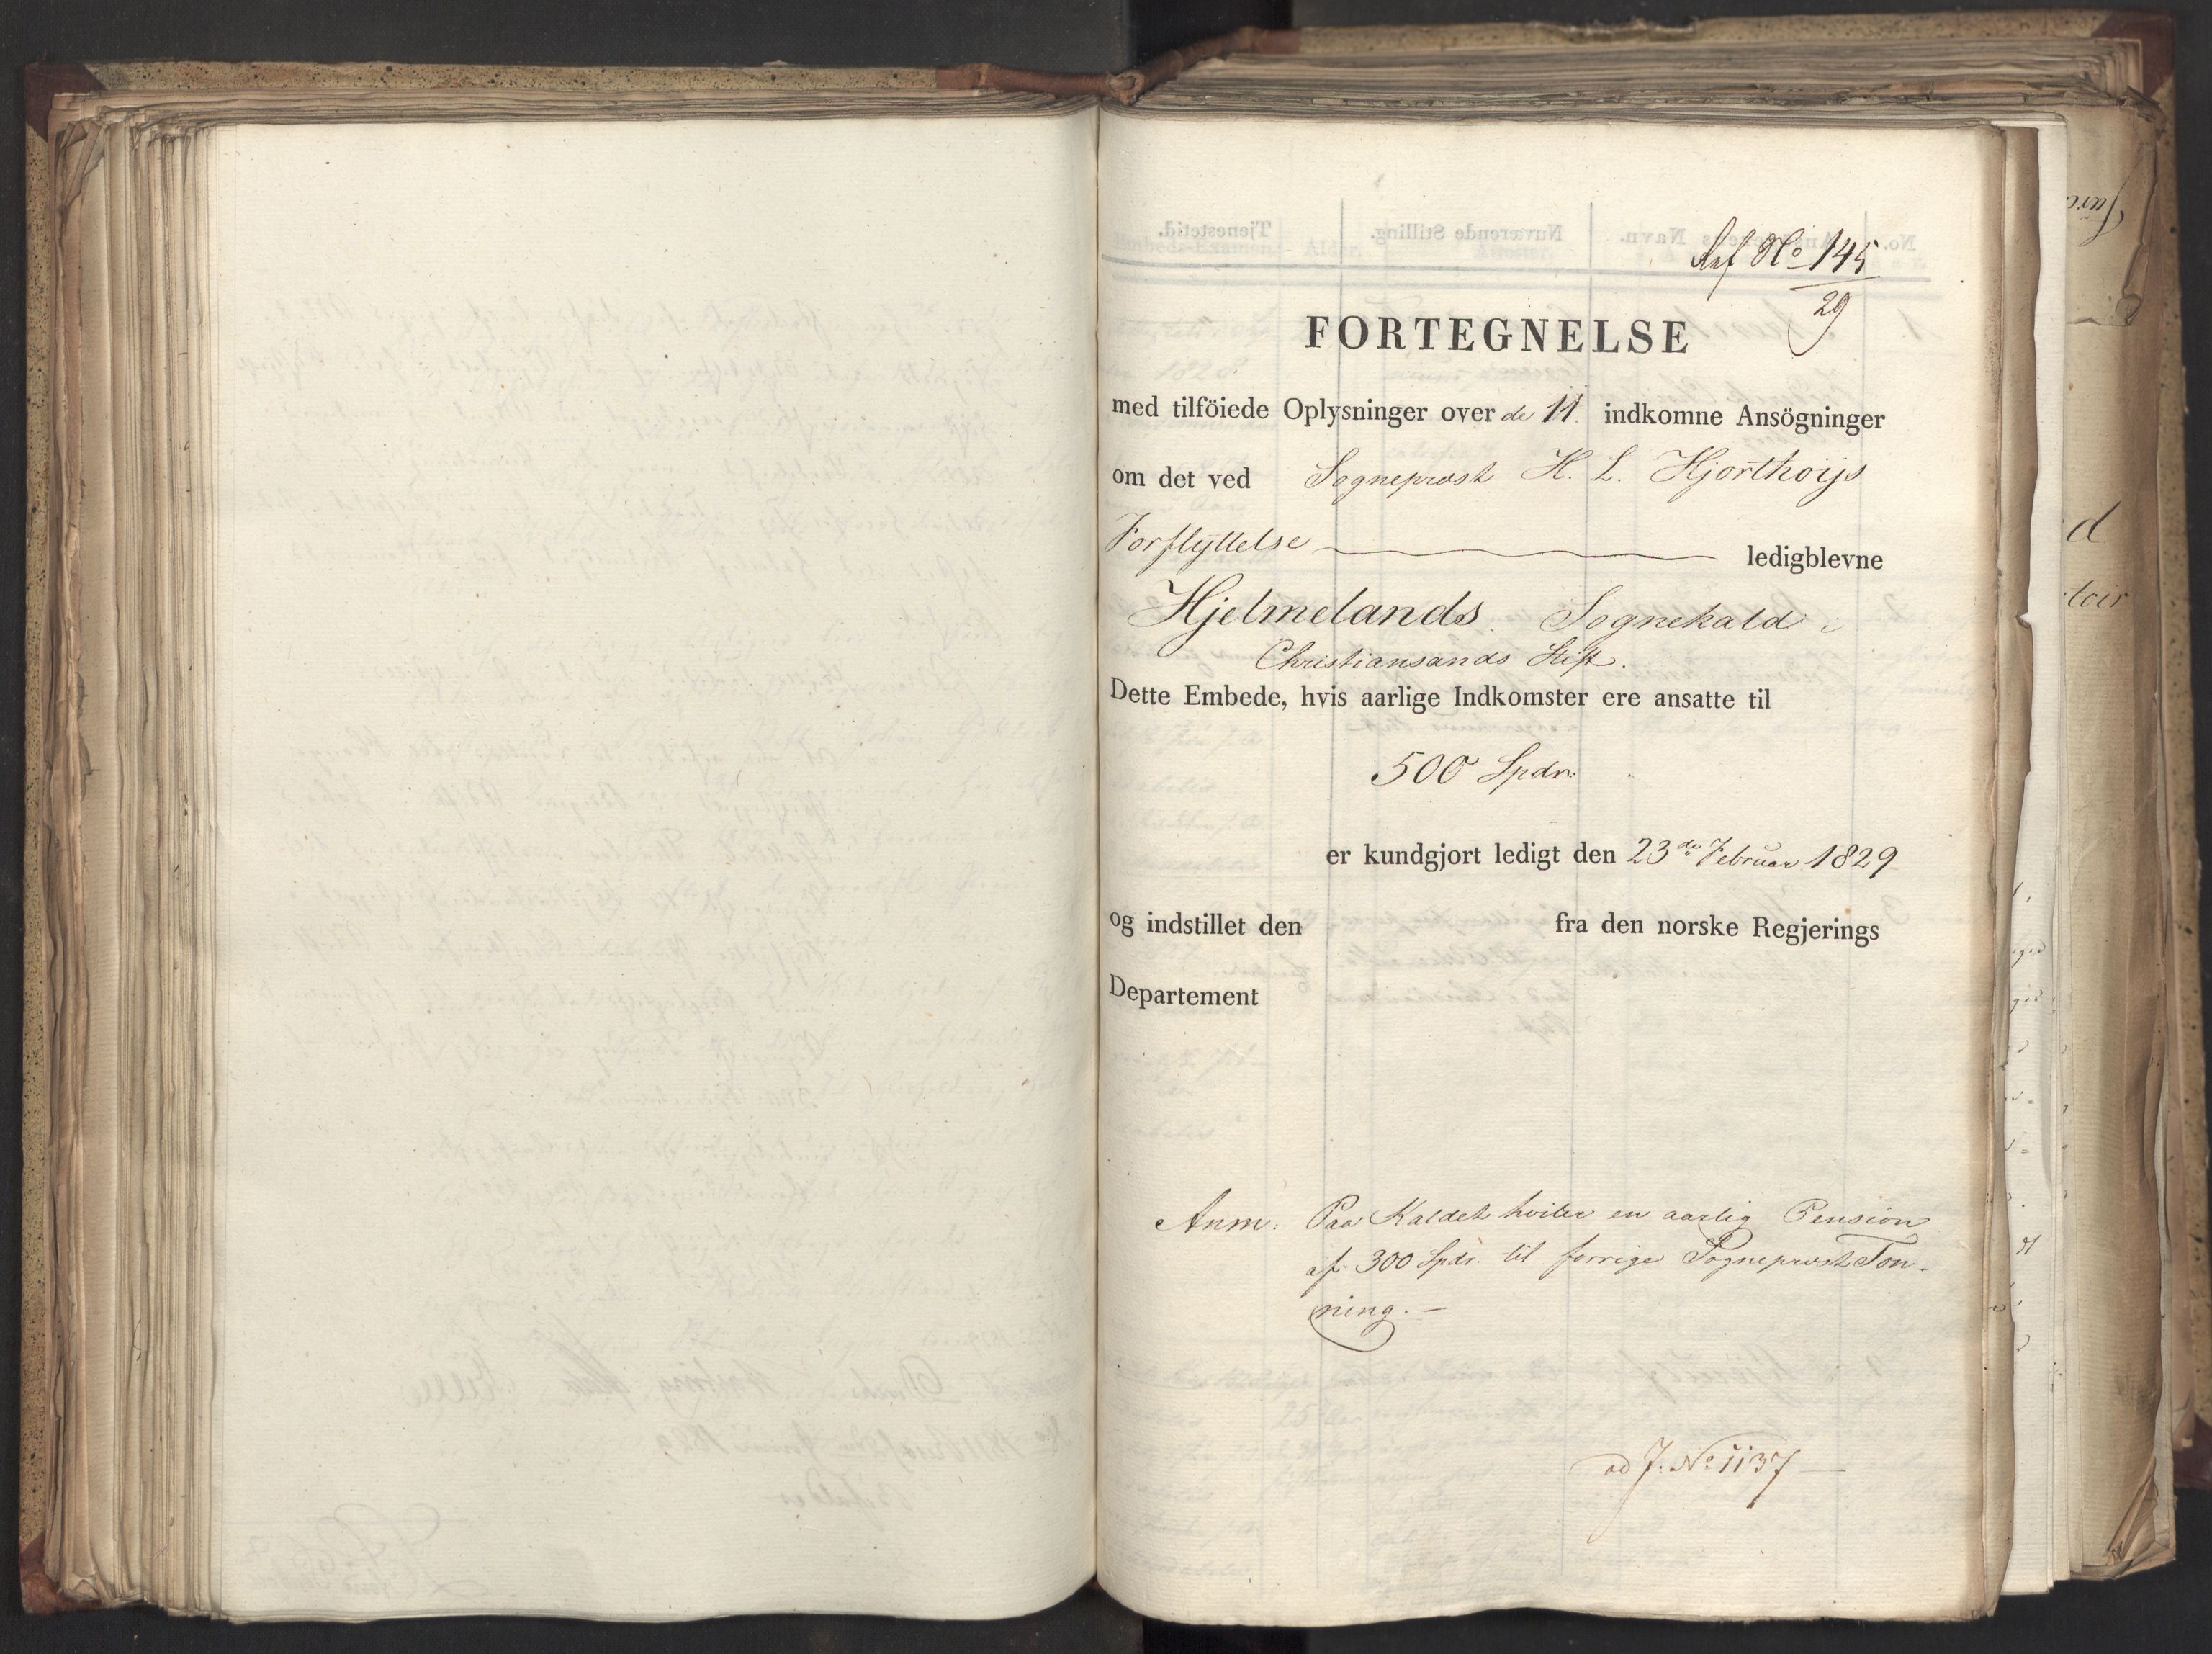 No 145
29
FORTEGNELSE
med tilföiede Oplysninger over de 11 indkomne Ansögninger
om det ved Sogneprest H. L. Hjorthoijs
Forflyttelse ledigblevne
Hjelmelands Sognekald i
Christiansands Stift.
Dette Embede, hvis aarlige Indkomster ere ansatte til
500 Spdr.
er kundgjort ledigt den 23de Februar 1829
og indstillet den fra den norske Regjerings
Departement
Anm: Paa Kaldet hviler en aarlig Pension
af 300 Spdr. til forrige Sogneprest Ton-
ning. —
ad J. No 1137